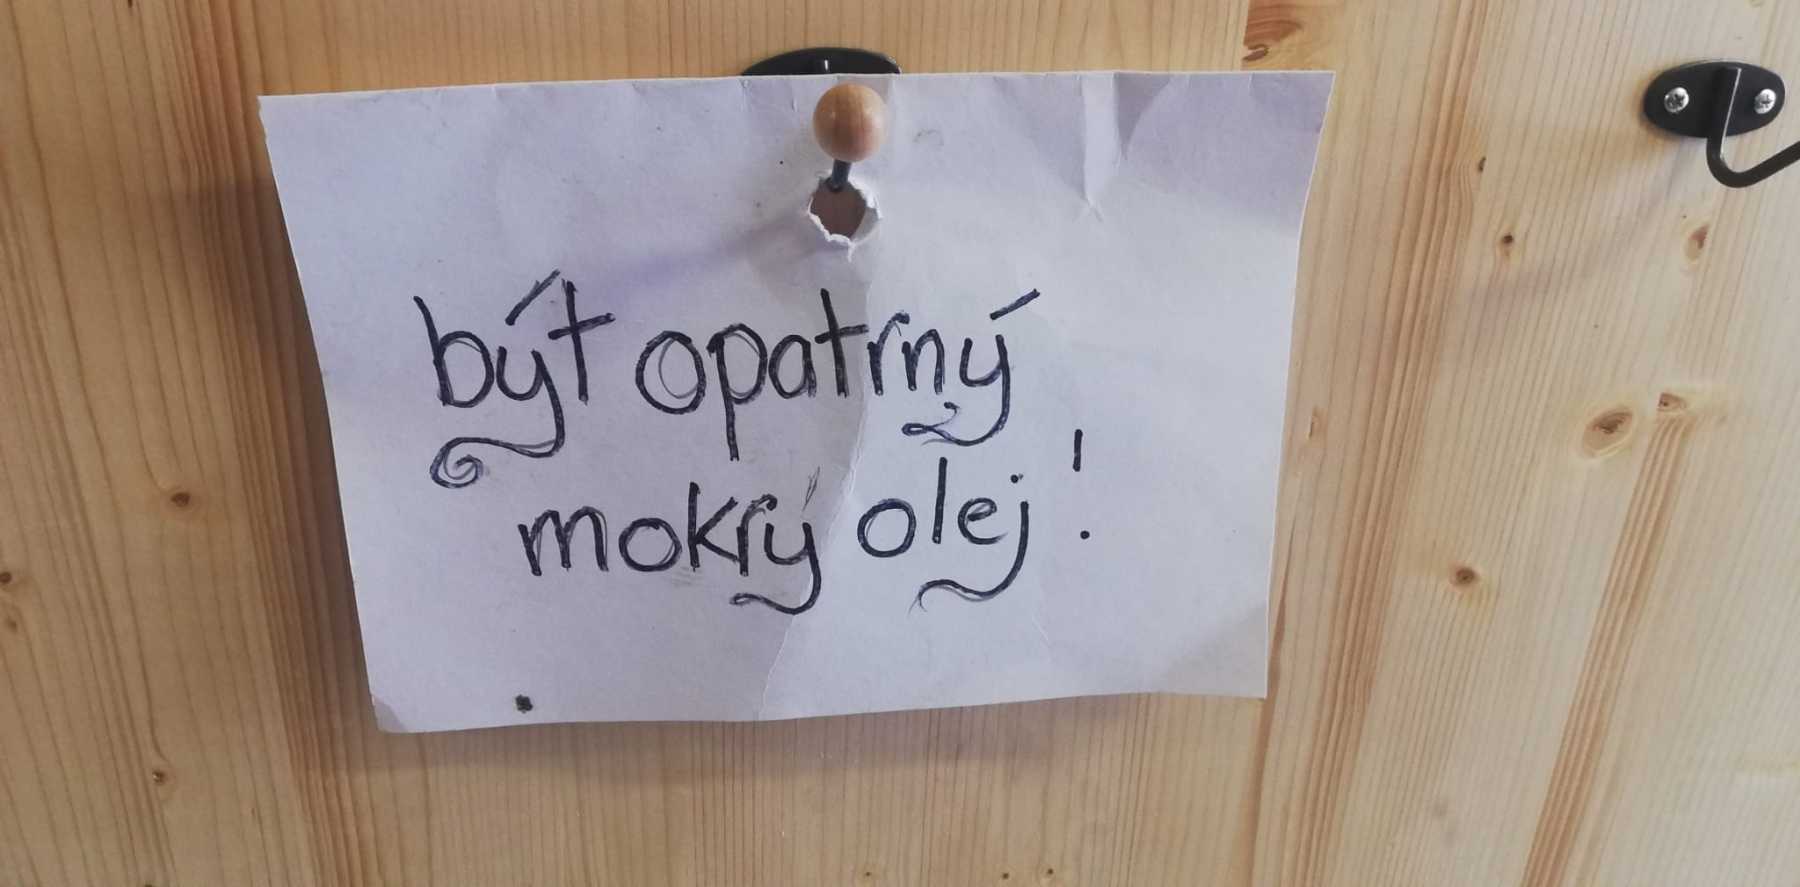 být opatrný
mokrý olej!